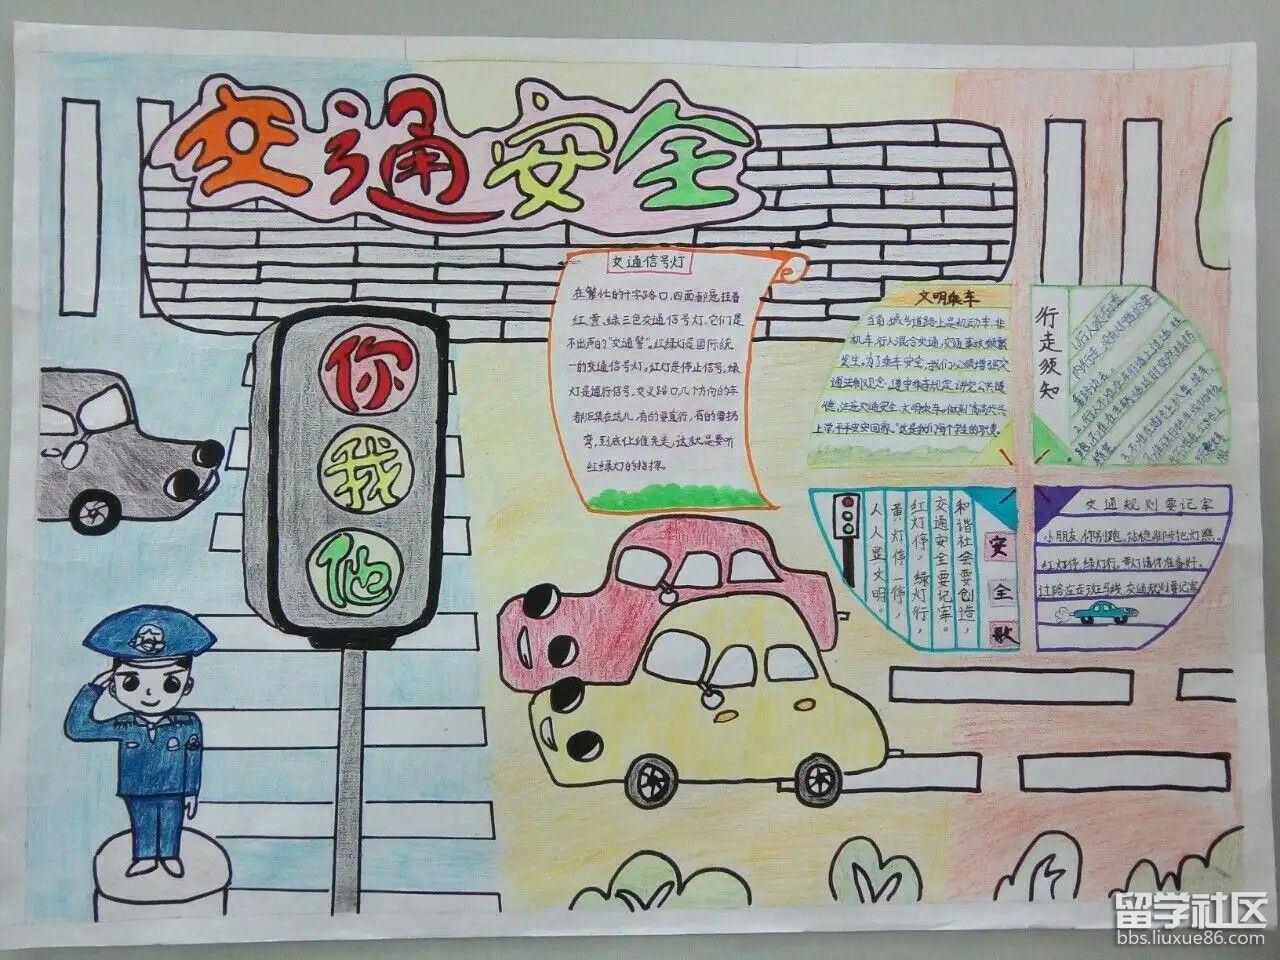 交通安全
你
我
他
交通信号灯
在繁忙的十字路口,四面都悬挂着
红、黄、绿三色交通信号灯,它们是
不出声的“交通警”。红绿灯是国际统
一的交通信号灯。红灯是停止信号,绿
灯是通行信号。交叉路口,几个方向的车
都汇集在这儿,有的要直行,有的要拐
弯,到底让谁先走,这就是要听
红绿灯的指挥。
文明乘车
当前,城乡道路上是机动车、非
机车、行人混合交通,交通事故频繁
发生。为了乘车安全,我们必须增强交
通法制观念,遵守乘车规定,讲究公共道
德,注意交通安全,文明乘车。做到“高高兴兴
上学,平平安安回家。”这是我们每个学生的职责。
行走须知
安全歌
和谐社会要创造,
交通安全要记牢。
红灯停,绿灯行,
黄灯停一停,
人人显文明。
交通规则要记牢
小朋友,你别跑,站稳脚步把灯瞧。
红灯停,绿灯行,黄灯请你准备好。
过路应走斑马线,交通规则要记牢
留学社区
bbs.liuxue86.com